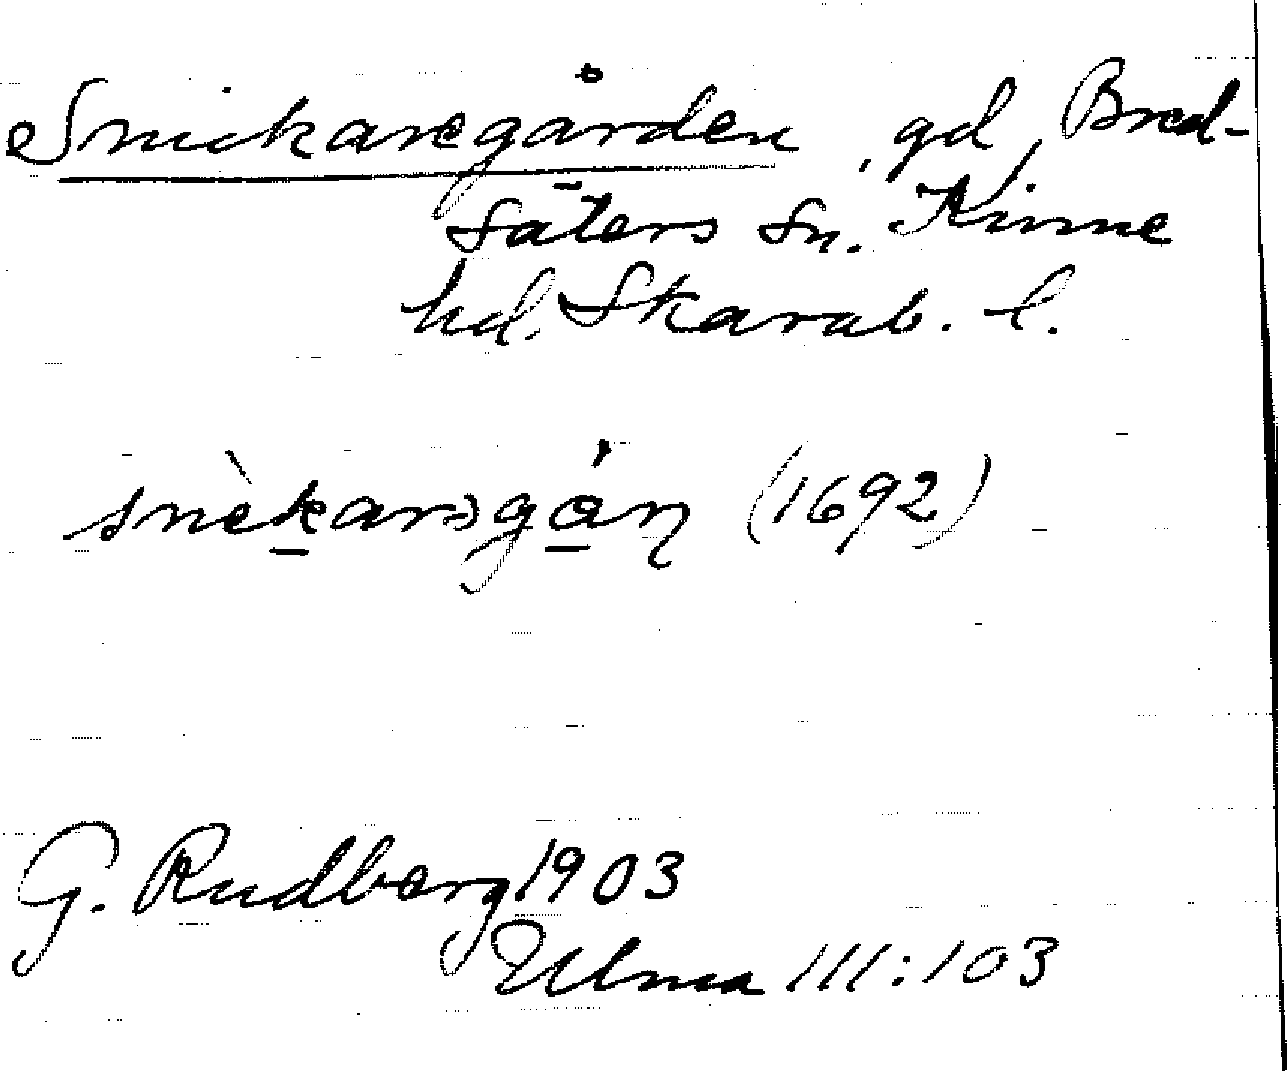 Snickaregården, gd, Bred-
säters sn. Kinne
hd. Skarab. l.
(1692)
G. Rudberg 1903
Ulma 111:103